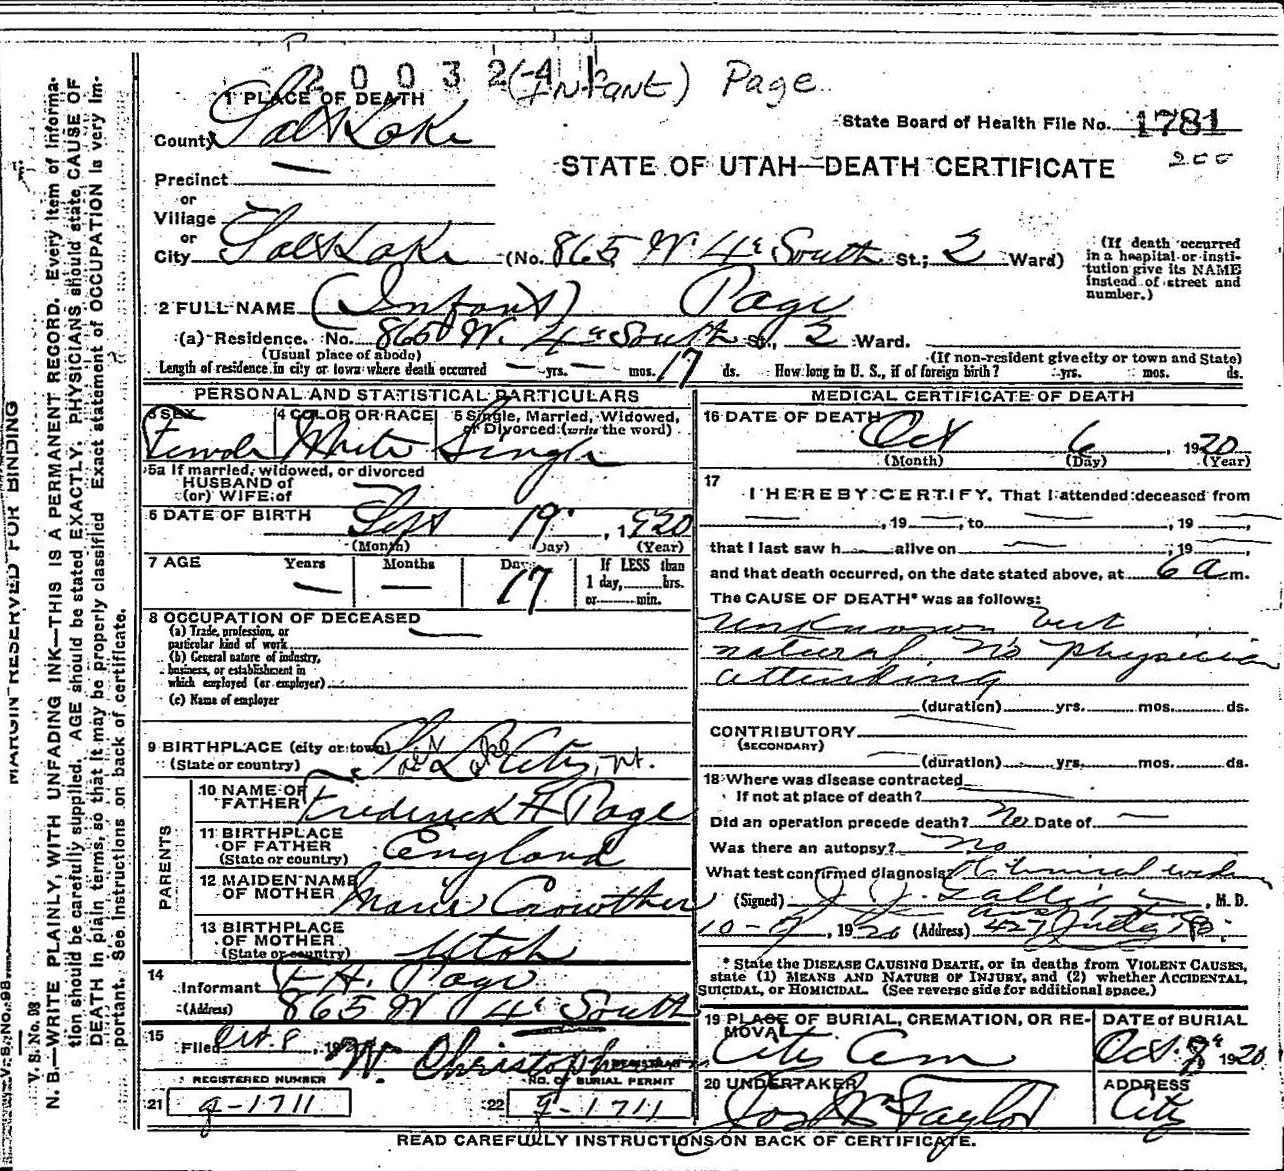 2 0 0 3 2 4 1 (INFANT) Page
1 PLACE OF DEATH
County Salt Lake
State Board of Health File No. 1781
200
STATE OF UTAH—DEATH CERTIFICATE
Precinct —
or
Village
or
City Salt Lake (No. 865 W 4th South St.; 2 Ward)
(If death occurred in a hospital or institution give its NAME instead of street and number.)
2 FULL NAME (Infant) Page
(a) Residence. No. 865 W. 4th South St., 2 Ward.
(Usual place of abode) (If non-resident give city or town and State)
Length of residence in city or town where death occurred — yrs. — mos. 17 ds. How long in U. S., if of foreign birth? yrs. mos. ds.
PERSONAL AND STATISTICAL PARTICULARS
3 SEX Female
4 COLOR OR RACE White
5 Single, Married, Widowed, or Divorced (write the word) Single
5a If married, widowed, or divorced
HUSBAND of
(or) WIFE of —
6 DATE OF BIRTH Sept 19, 1920
(Month) (Day) (Year)
7 AGE Years — Months — Days 17 If LESS than 1 day, hrs. or min.
8 OCCUPATION OF DECEASED
(a) Trade, profession, or particular kind of work —
(b) General nature of industry, business, or establishment in which employed (or employer)
(c) Name of employer
9 BIRTHPLACE (city or town) Salt Lake City, Ut.
(State or country)
PARENTS
10 NAME OF FATHER Frederick H Page
11 BIRTHPLACE OF FATHER (State or country) England
12 MAIDEN NAME OF MOTHER Marie Crowther
13 BIRTHPLACE OF MOTHER (State or country) Utah
14 Informant F. H. Page
(Address) 865 W 4th South
15 Filed Oct. 8, 192 W. Christoph
REGISTRAR
REGISTERED NUMBER
21 g-1711
NO. OF BURIAL PERMIT
22 g-1711
MEDICAL CERTIFICATE OF DEATH
16 DATE OF DEATH Oct 6, 1920
(Month) (Day) (Year)
17 I HEREBY CERTIFY, That I attended deceased from
—, 19 —, to —, 19 —,
that I last saw h — alive on —, 19 —,
and that death occurred, on the date stated above, at 6 a m.
The CAUSE OF DEATH* was as follows:
unknown but
natural. No physician
attending
(duration) yrs. mos. ds.
CONTRIBUTORY —
(SECONDARY)
(duration) — yrs. mos. ds.
18 Where was disease contracted
If not at place of death? —
Did an operation precede death? No Date of —
Was there an autopsy? No
What test confirmed diagnosis?
(Signed) J. J. , M. D.
10-7, 1920 (Address) 427 Judge B.
* State the DISEASE CAUSING DEATH, or in deaths from VIOLENT CAUSES, state (1) MEANS AND NATURE OF INJURY, and (2) whether ACCIDENTAL, SUICIDAL, or HOMICIDAL. (See reverse side for additional space.)
19 PLACE OF BURIAL, CREMATION, OR REMOVAL City Cem
DATE OF BURIAL Oct. 8th 1920
20 UNDERTAKER Jos Wm Taylor
ADDRESS City
READ CAREFULLY INSTRUCTIONS ON BACK OF CERTIFICATE.
V. S. No. 98
MARGIN RESERVED FOR BINDING
V. S. No. 98
N. B.—WRITE PLAINLY, WITH UNFADING INK—THIS IS A PERMANENT RECORD. Every item of information should be carefully supplied. AGE should be stated EXACTLY. PHYSICIANS should state CAUSE OF DEATH in plain terms, so that it may be properly classified. Exact statement of OCCUPATION is very important. See instructions on back of certificate.